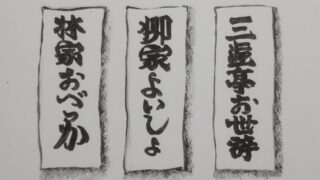 三遊亭お世辞
柳家よいしょ
林家おべっか